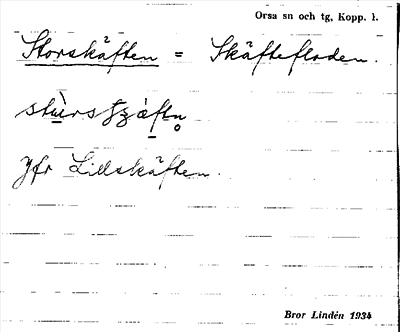 Orsa sn och tg, Kopp. l.
Storskäften = Skäftefloden.
stùrsʃzæftn̥
Jfr Lillskäften.
Bror Lindén 1934